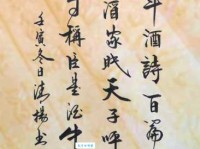 斗酒詩百篇
酒家眠天子呼
自稱臣是酒中
壬寅冬日楊書